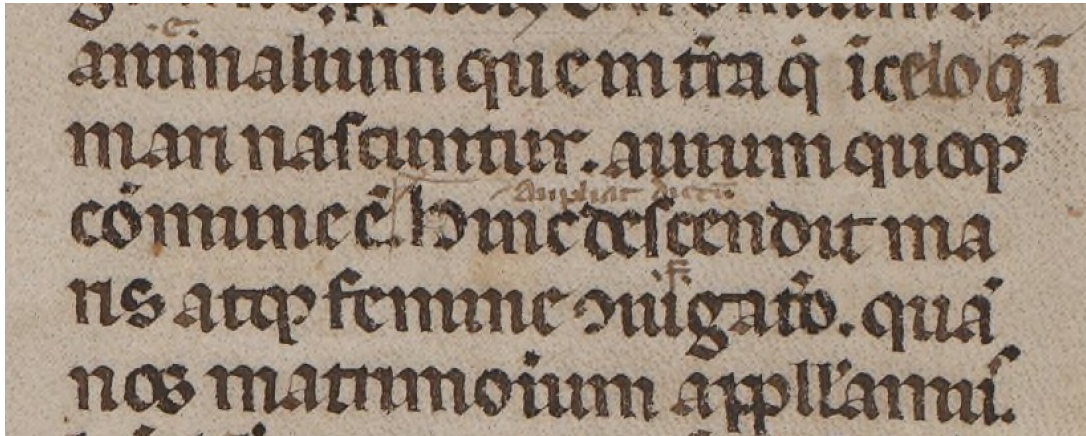 animalium que in t̄ra q̄ ī celo q̄ ī
mari nascuntur. auium quoqꝫ
cōmune ē. hinc descendit ma
ris atqꝫ femine ꝯiūgatō. quā
nos matrimonium appell'amus.